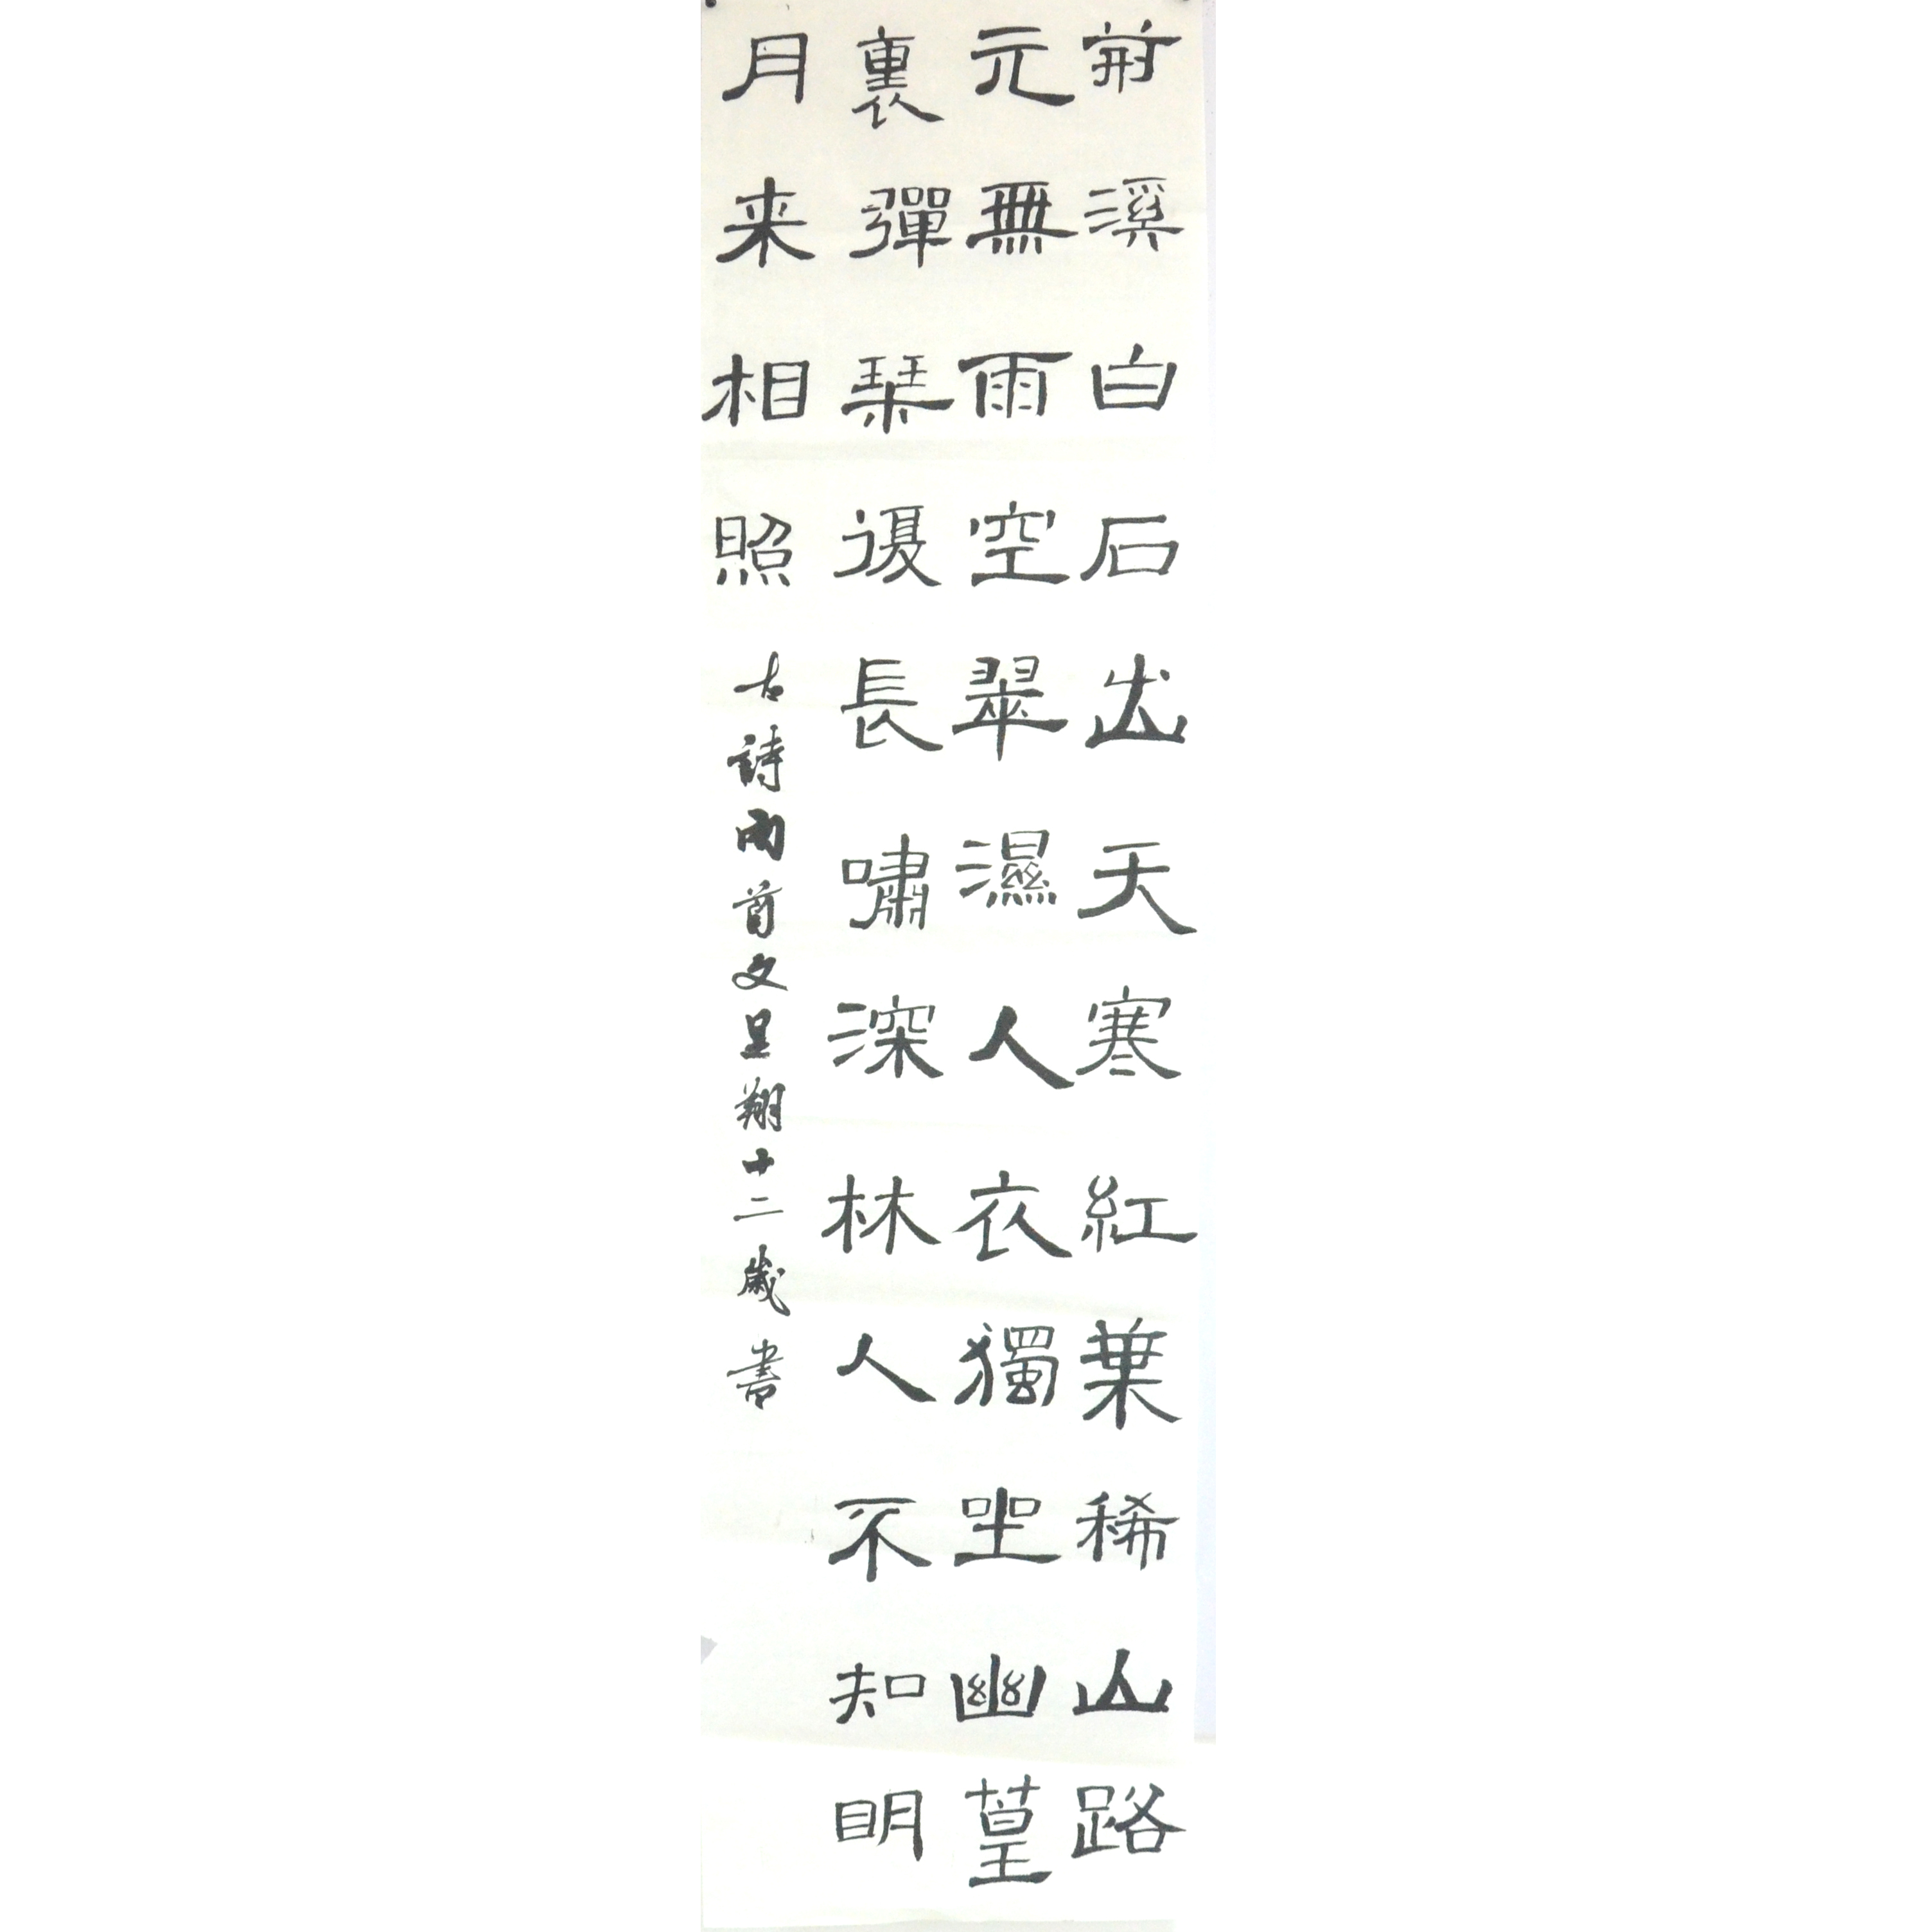 荊溪白石出天寒紅葉稀山路
元無雨空翠濕人衣獨坐幽篁
裏彈琹復長嘯深林人不知明
月来相照
古詩兩首文呈翔十二歲書